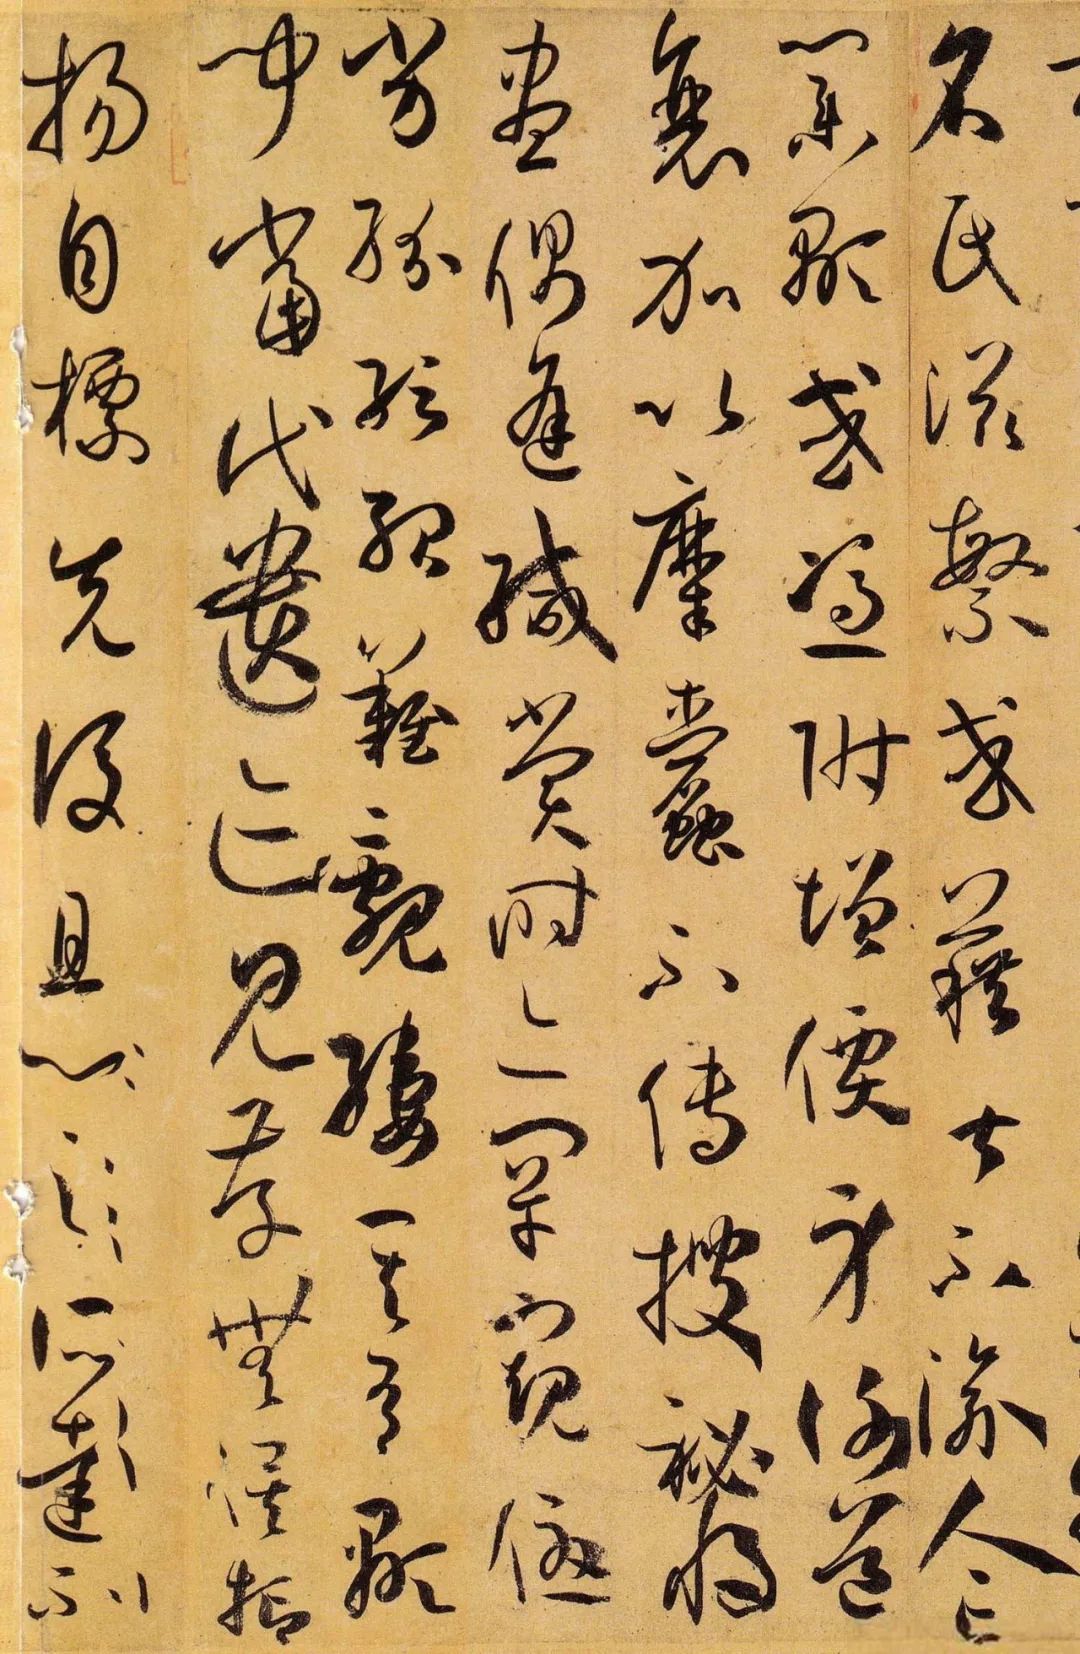 名氏滋繁或藉甚不渝人亡
業顯或憑附增價身謝道
衰加以糜蠹不傳搜祕將
盡偶逢緘賞時亦罕窺優
劣紛紜殆難覼縷其有顯
聞當代遺迹見存無俟抑
揚自標先後且